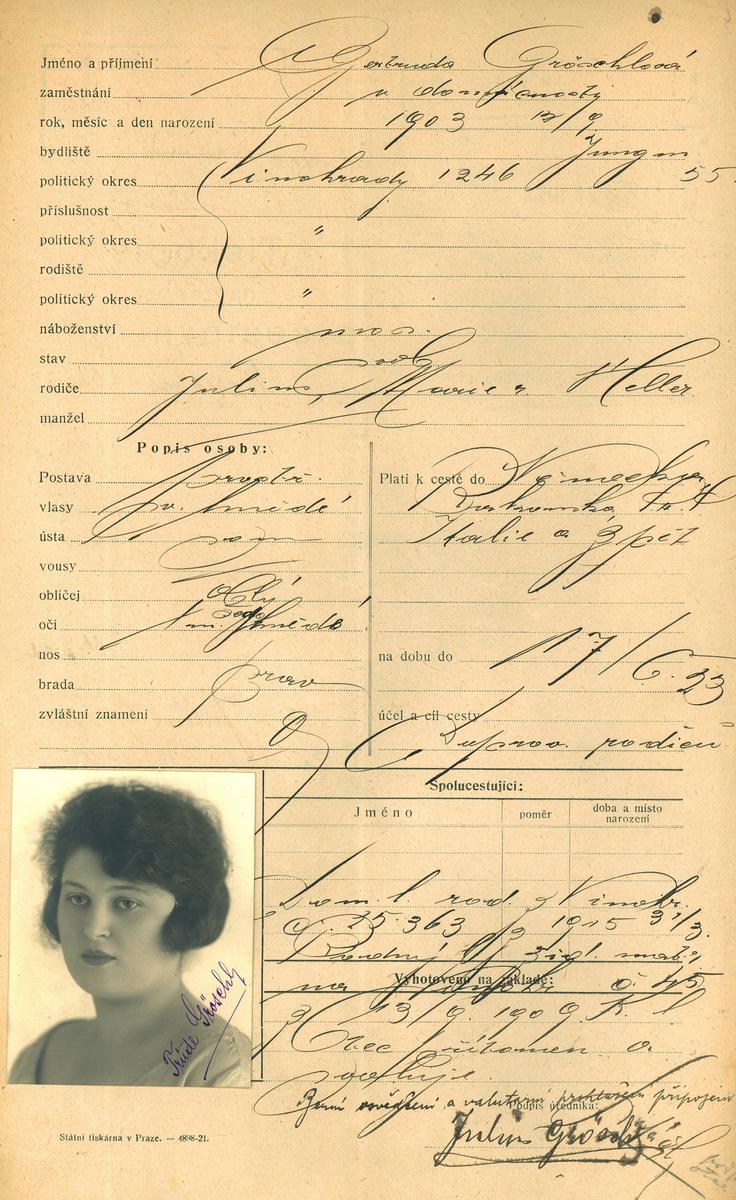 Jméno a příjmení Gertruda Gröschlová
zaměstnání v domácnosti
rok, měsíc a den narození 1903 12/9
bydliště Jungm 55
politický okres Vinohrady 1246
příslušnost
politický okres "
rodiště
politický okres "
náboženství mos.
stav sv.
rodiče Julius, Marie r. Heller
manžel
Popis osoby:
Postava prostř.
vlasy tm. hnědé
ústa
vousy
obličej oblý
oči tm. hnědé
nos
brada prav
zvláštní znamení 0
Platí k cestě do Německa,
Rakouska,
Italie a zpět
na dobu do 17/6.23
účel a cíl cesty
Duprov. rodičů
Spolucestující:
Jméno
poměr
doba a místo narození
Dom. l. rod. z Vinohr.
č. 25.363 z 1915 31/3.
Rodný l. žid. mat.
Vyhotoveno na základě:
na č. 45
z 13/9. 1909
Otec přítomen a
svoluje.
a valutární prohlášení připojeny
Podpis úředníka:
Julius Gröschl
Trude Gröschl
Státní tiskárna v Praze. — 4898-21.